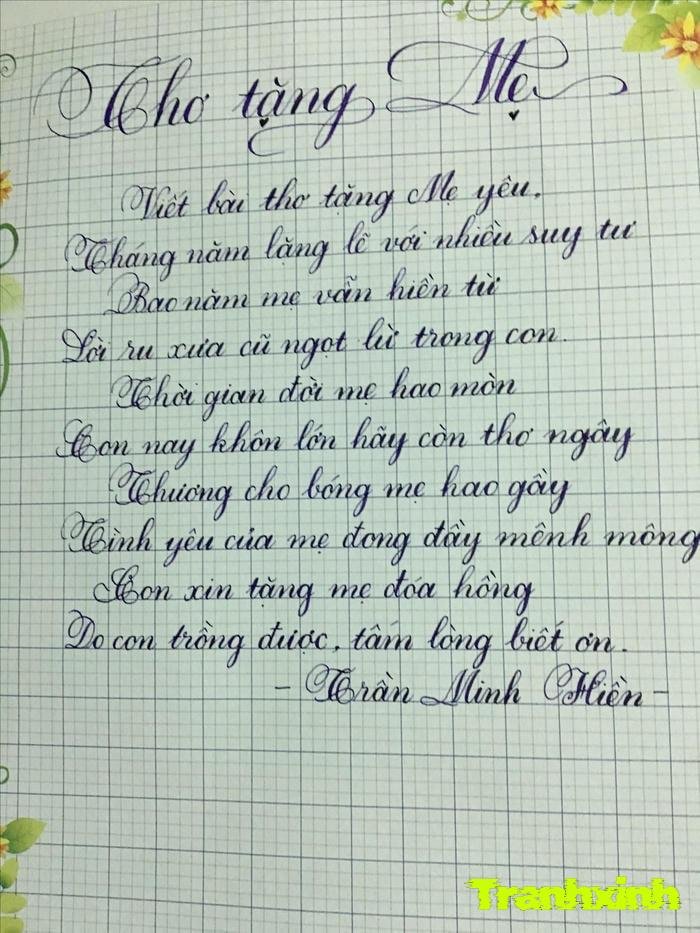 Thơ tặng Mẹ
Viết bài thơ tặng Mẹ yêu.
Tháng năm lặng lẽ với nhiều suy tư
Bao năm mẹ vẫn hiền từ
Lời ru xưa cũ ngọt lừ trong con.
Thời gian đời mẹ hao mòn
Con nay khôn lớn hãy còn thơ ngây
Thương cho bóng mẹ hao gầy
Tình yêu của mẹ đong đầy mênh mông
Con xin tặng mẹ đóa hồng
Do con trồng được, tâm lòng biết ơn.
- Trần Minh Hiền -
Tranhxinh